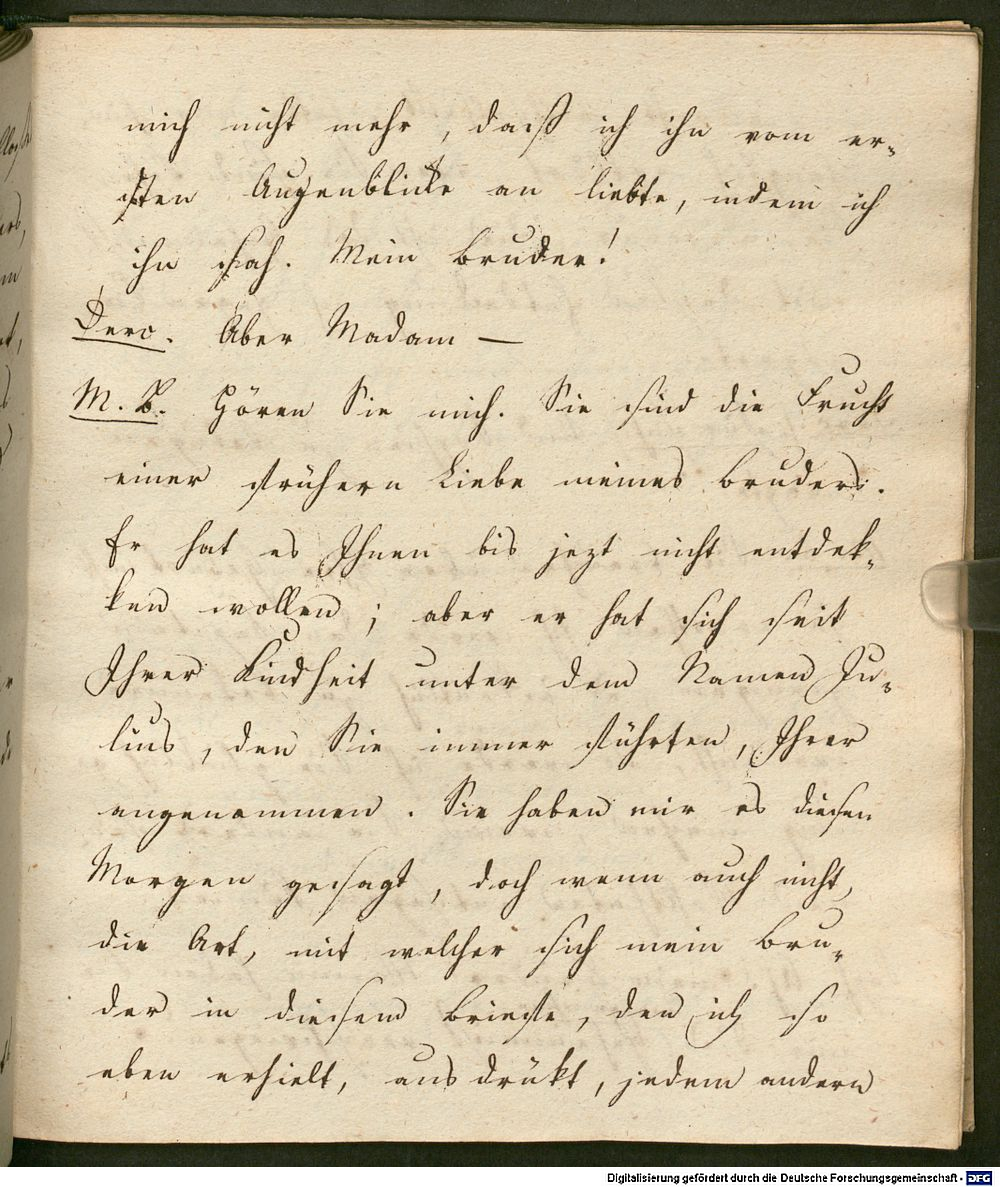 mich nicht mehr, daß ich ihn vom er-
sten Augenblicke an liebte, indem ich
ihn sah. Mein Bruder!
Derv. Aber Madam —
M. B. Hören Sie mich. Sie sind die Frucht
einer frühern Liebe meines Bruders.
Er hat es Ihnen bis jezt nicht entdek-
ken wollen; aber er hat sich seit
Ihrer Kindheit unter dem Namen Ju-
lius, den Sie immer führten, Ihrer
angenommen. Sie haben mir es diesen
Morgen gesagt, doch wenn auch nicht,
die Art, mit welcher sich mein Bru-
der in diesem Briefe, den ich so
eben erhielt, ausdrükt, jedem andern
Digitalisierung gefördert durch die Deutsche Forschungsgemeinschaft - DFG